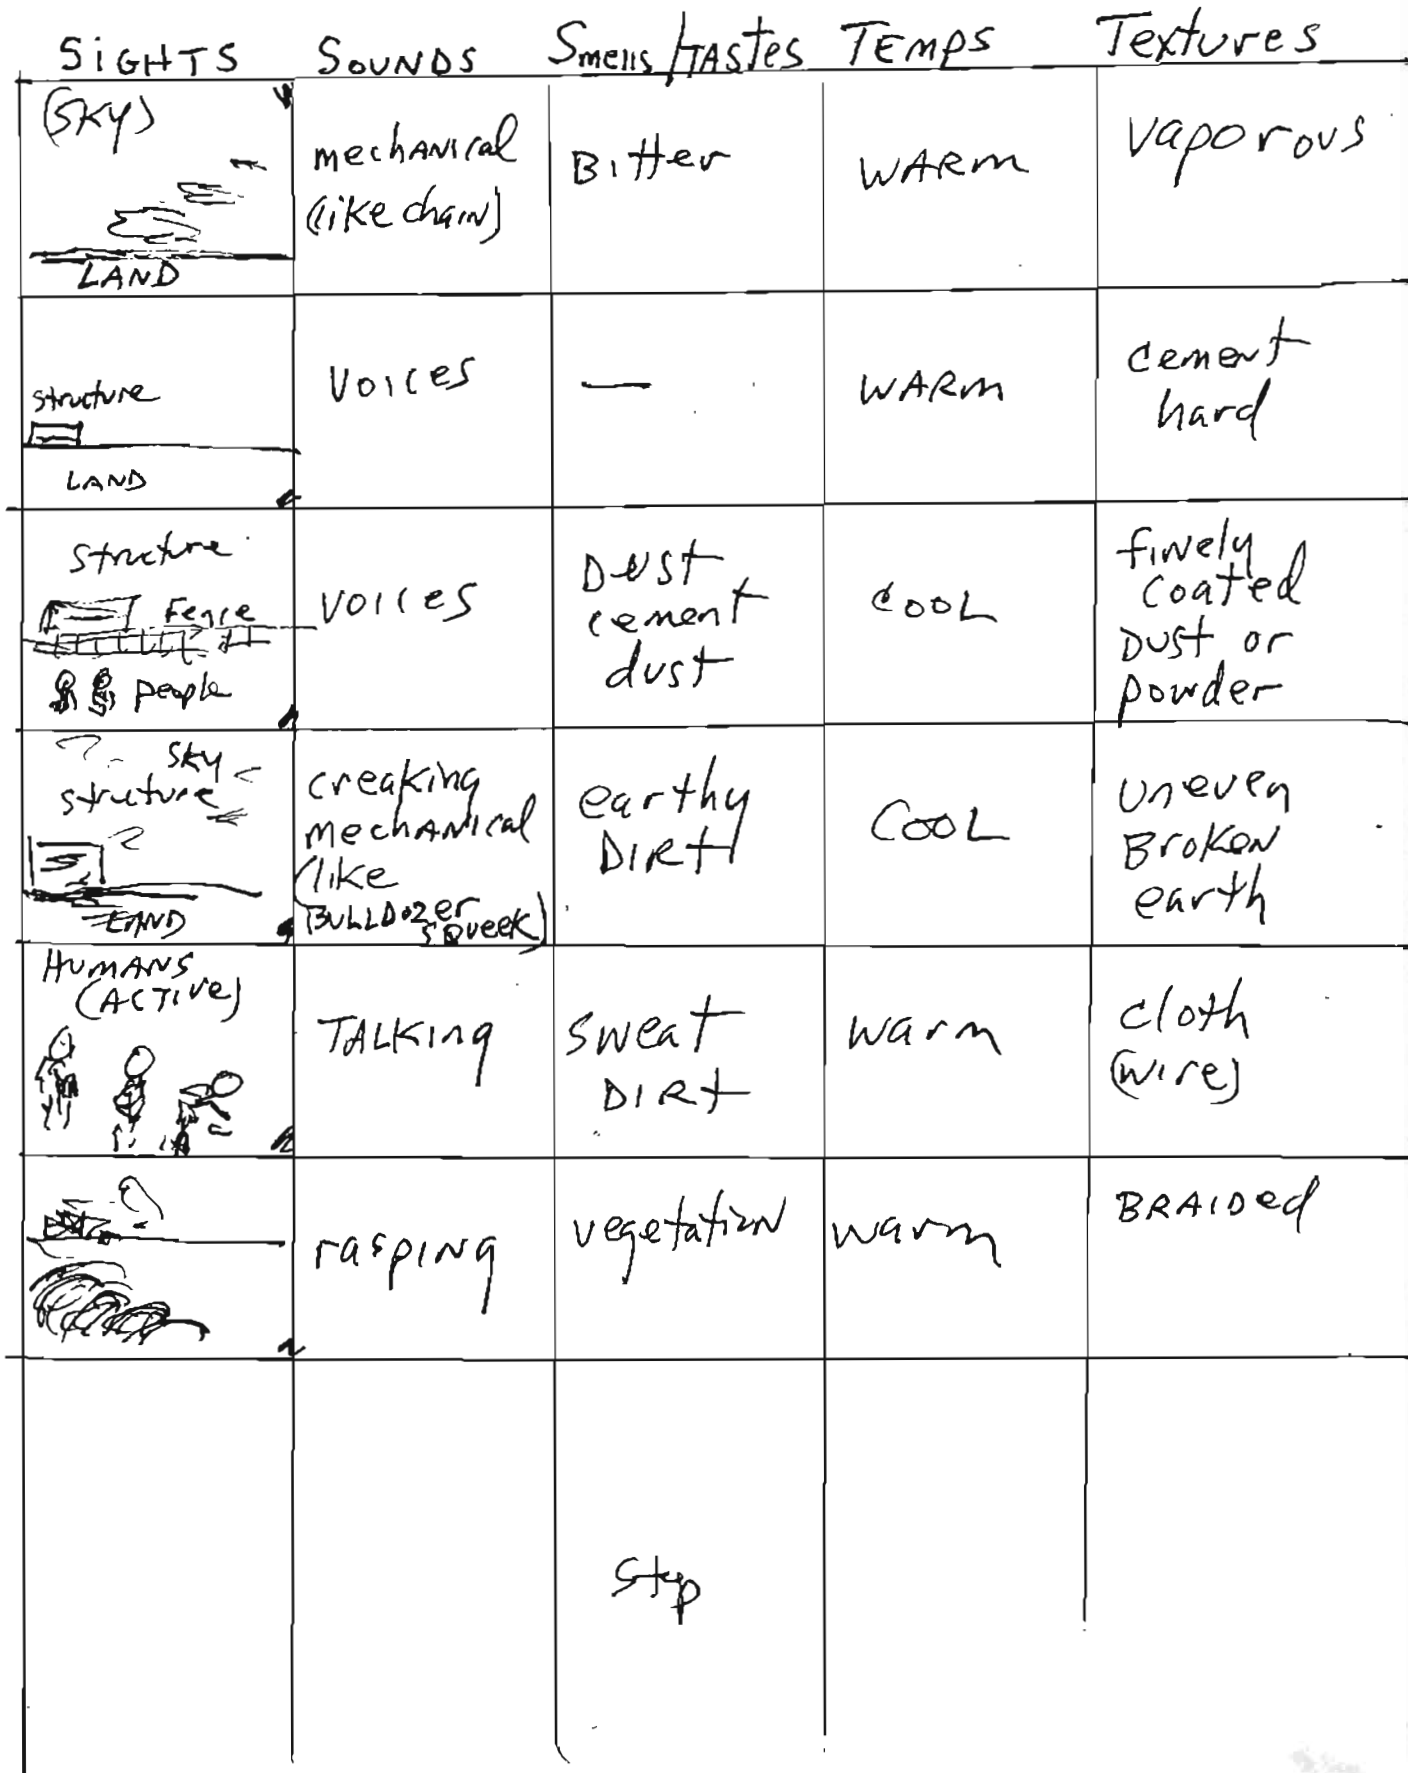 SIGHTS SOUNDS Smells/TASTES TEMPS Textures
(SKY)
LAND
mechANical
(like chain)
Bitter
WARM
Vaporous
structure
LAND
VOICES
—
WARM
cement
hard
structure
Fence
people
VOICES
DUST
cement
dust
COOL
finely
coated
DUST or
powder
SKY
structure
LAND
creaking
mechANical
(like
BULLDozer
SQUEEK)
earthy
DIRT
COOL
Uneven
BroKen
earth
HUMANS
(ACTIVE)
TALKing
sweat
DIRT
warm
cloth
(wire)
raspINg
vegetatioN
warm
BRAIDed
Stop